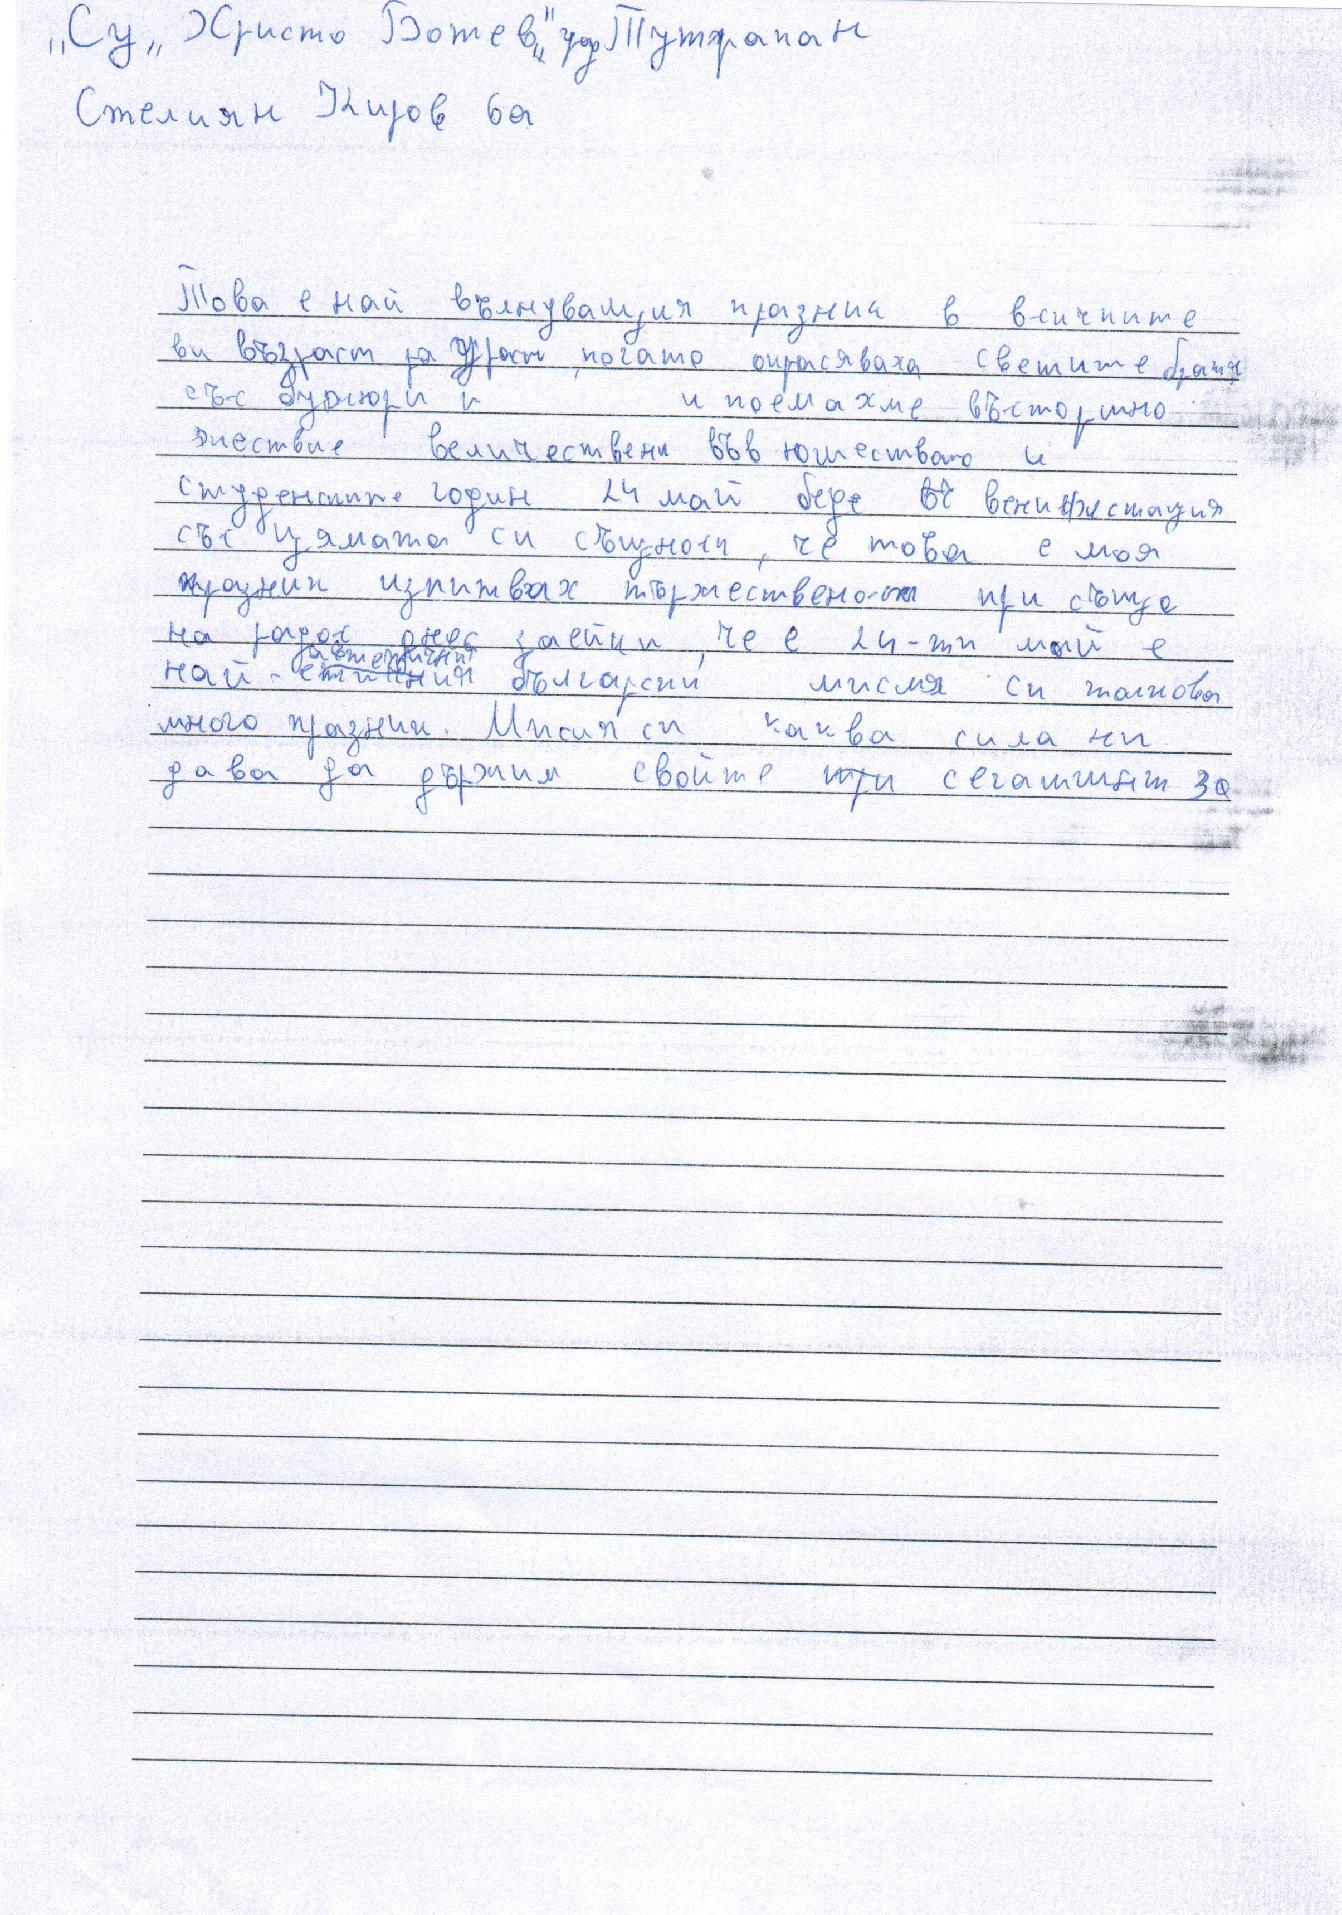 „Су„ Христо Ботев“ гр Тутракан
Стелиян Киров 6а
Това е най вълнуващия празник в всичките
ви възраст за ,когато окрасяваха светите братя
със букюри и и поемахме въсторжно
шествие величествени във юшествато и
студенските годин 24 май беде
със цямата си същност, че това е моя
празник изпитвах тържественост при също
на радох днес заейки, че е 24-ти май е
най-автентичния български мисля си толкова
много празник. Мисля си каква сила ни
дава да държим свойте при сегашният за